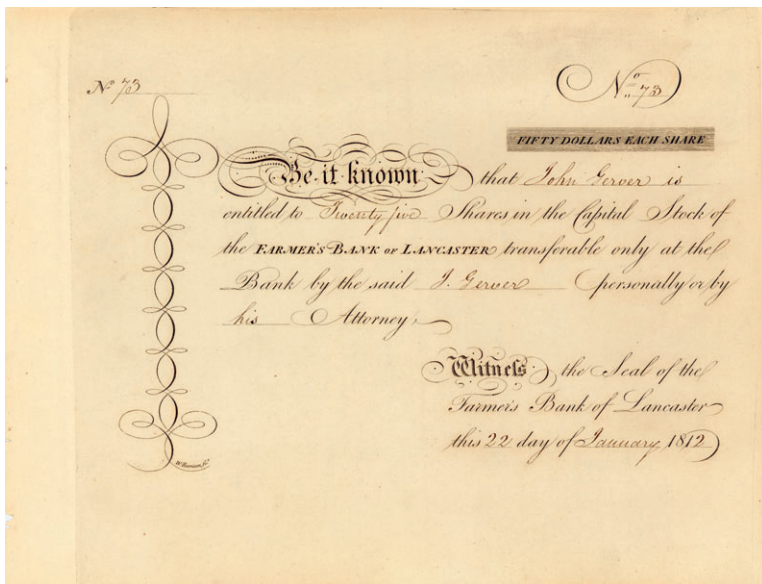 No 73
No 73
FIFTY DOLLARS EACH SHARE
Be it known that John Gerver is
entitled to Twenty five Shares in the Capital Stock of
the FARMER'S BANK OF LANCASTER transferable only at the
Bank by the said J. Gerver personally or by
his Attorney.
Witness the Seal of the
Farmer's Bank of Lancaster
this 22 day of January 1812